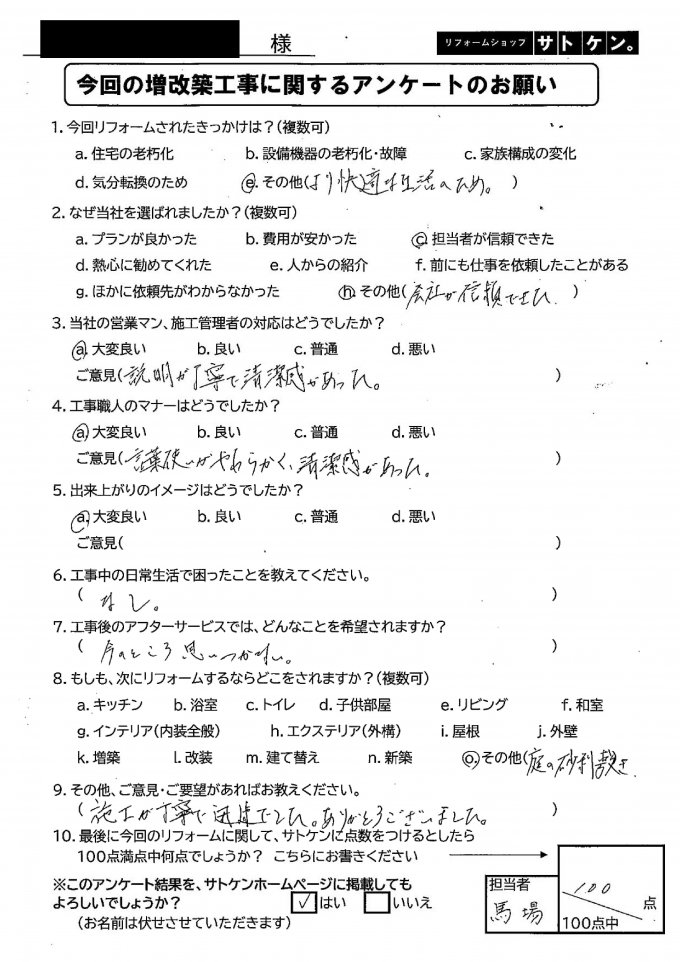 様
リフォームショップ サトケン。
今回の増改築工事に関するアンケートのお願い
1. 今回リフォームされたきっかけは？(複数可)
a. 住宅の老朽化 b. 設備機器の老朽化・故障 c. 家族構成の変化
d. 気分転換のため e. その他(より快適な生活のため。)
2. なぜ当社を選ばれましたか？(複数可)
a. プランが良かった b. 費用が安かった c. 担当者が信頼できた
d. 熱心に勧めてくれた e. 人からの紹介 f. 前にも仕事を依頼したことがある
g. ほかに依頼先がわからなかった h. その他(会社が信頼できた.)
3. 当社の営業マン、施工管理者の対応はどうでしたか？
a. 大変良い b. 良い c. 普通 d. 悪い
ご意見(説明が丁寧で清潔感があった。)
4. 工事職人のマナーはどうでしたか？
a. 大変良い b. 良い c. 普通 d. 悪い
ご意見(言葉使いがやわらかく、清潔感があった。)
5. 出来上がりのイメージはどうでしたか？
a. 大変良い b. 良い c. 普通 d. 悪い
ご意見( )
6. 工事中の日常生活で困ったことを教えてください。
(なし。)
7. 工事後のアフターサービスでは、どんなことを希望されますか？
(今のところ思いつかない。)
8. もしも、次にリフォームするならどこをされますか？(複数可)
a. キッチン b. 浴室 c. トイレ d. 子供部屋 e. リビング f. 和室
g. インテリア(内装全般) h. エクステリア(外構) i. 屋根 j. 外壁
k. 増築 l. 改装 m. 建て替え n. 新築 o. その他(庭の砂利敷き
9. その他、ご意見・ご要望があればお教えください。
(施工が丁寧で迅速でした。ありがとうございました。)
10. 最後に今回のリフォームに関して、サトケンに点数をつけるとしたら
100点満点中何点でしょうか？ こちらにお書きください
※このアンケート結果を、サトケンホームページに掲載しても
よろしいでしょうか？ ✓はい いいえ
(お名前は伏せさせていただきます)
担当者
馬場
100 点
100点中